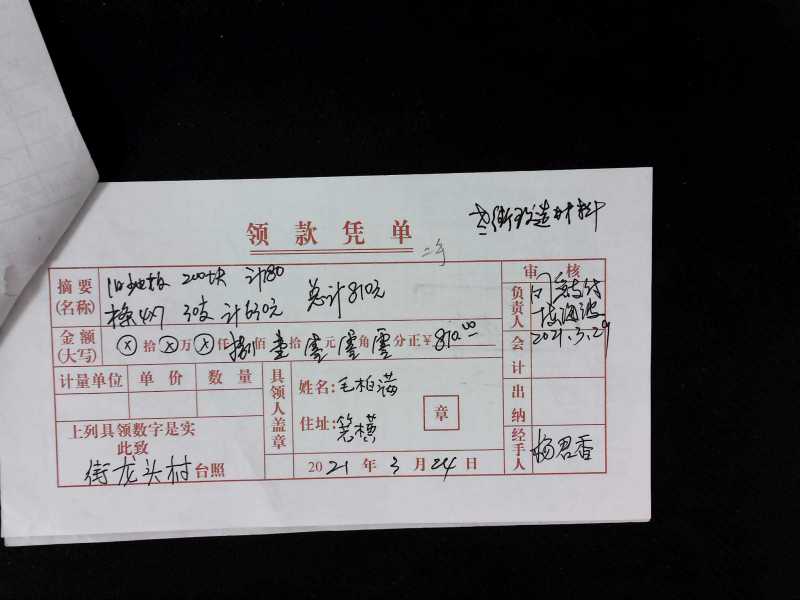 老街改造材料
领款凭单
摘要 旧地板 200块 计180
(名称) 3支 计630元 总计810元
审核
金额 ⓧ拾ⓧ万ⓧ仟捌佰壹拾零元零角零分正¥810.00
(大写)
负责人 同意支付
2021.3.29
会计
计量单位 单价 数量
具领人盖章
姓名:毛柏满
章
出纳
住址:箬横
上列具领数字是实
此致
街龙头村台照
2021年3月24日
经手人 杨君香